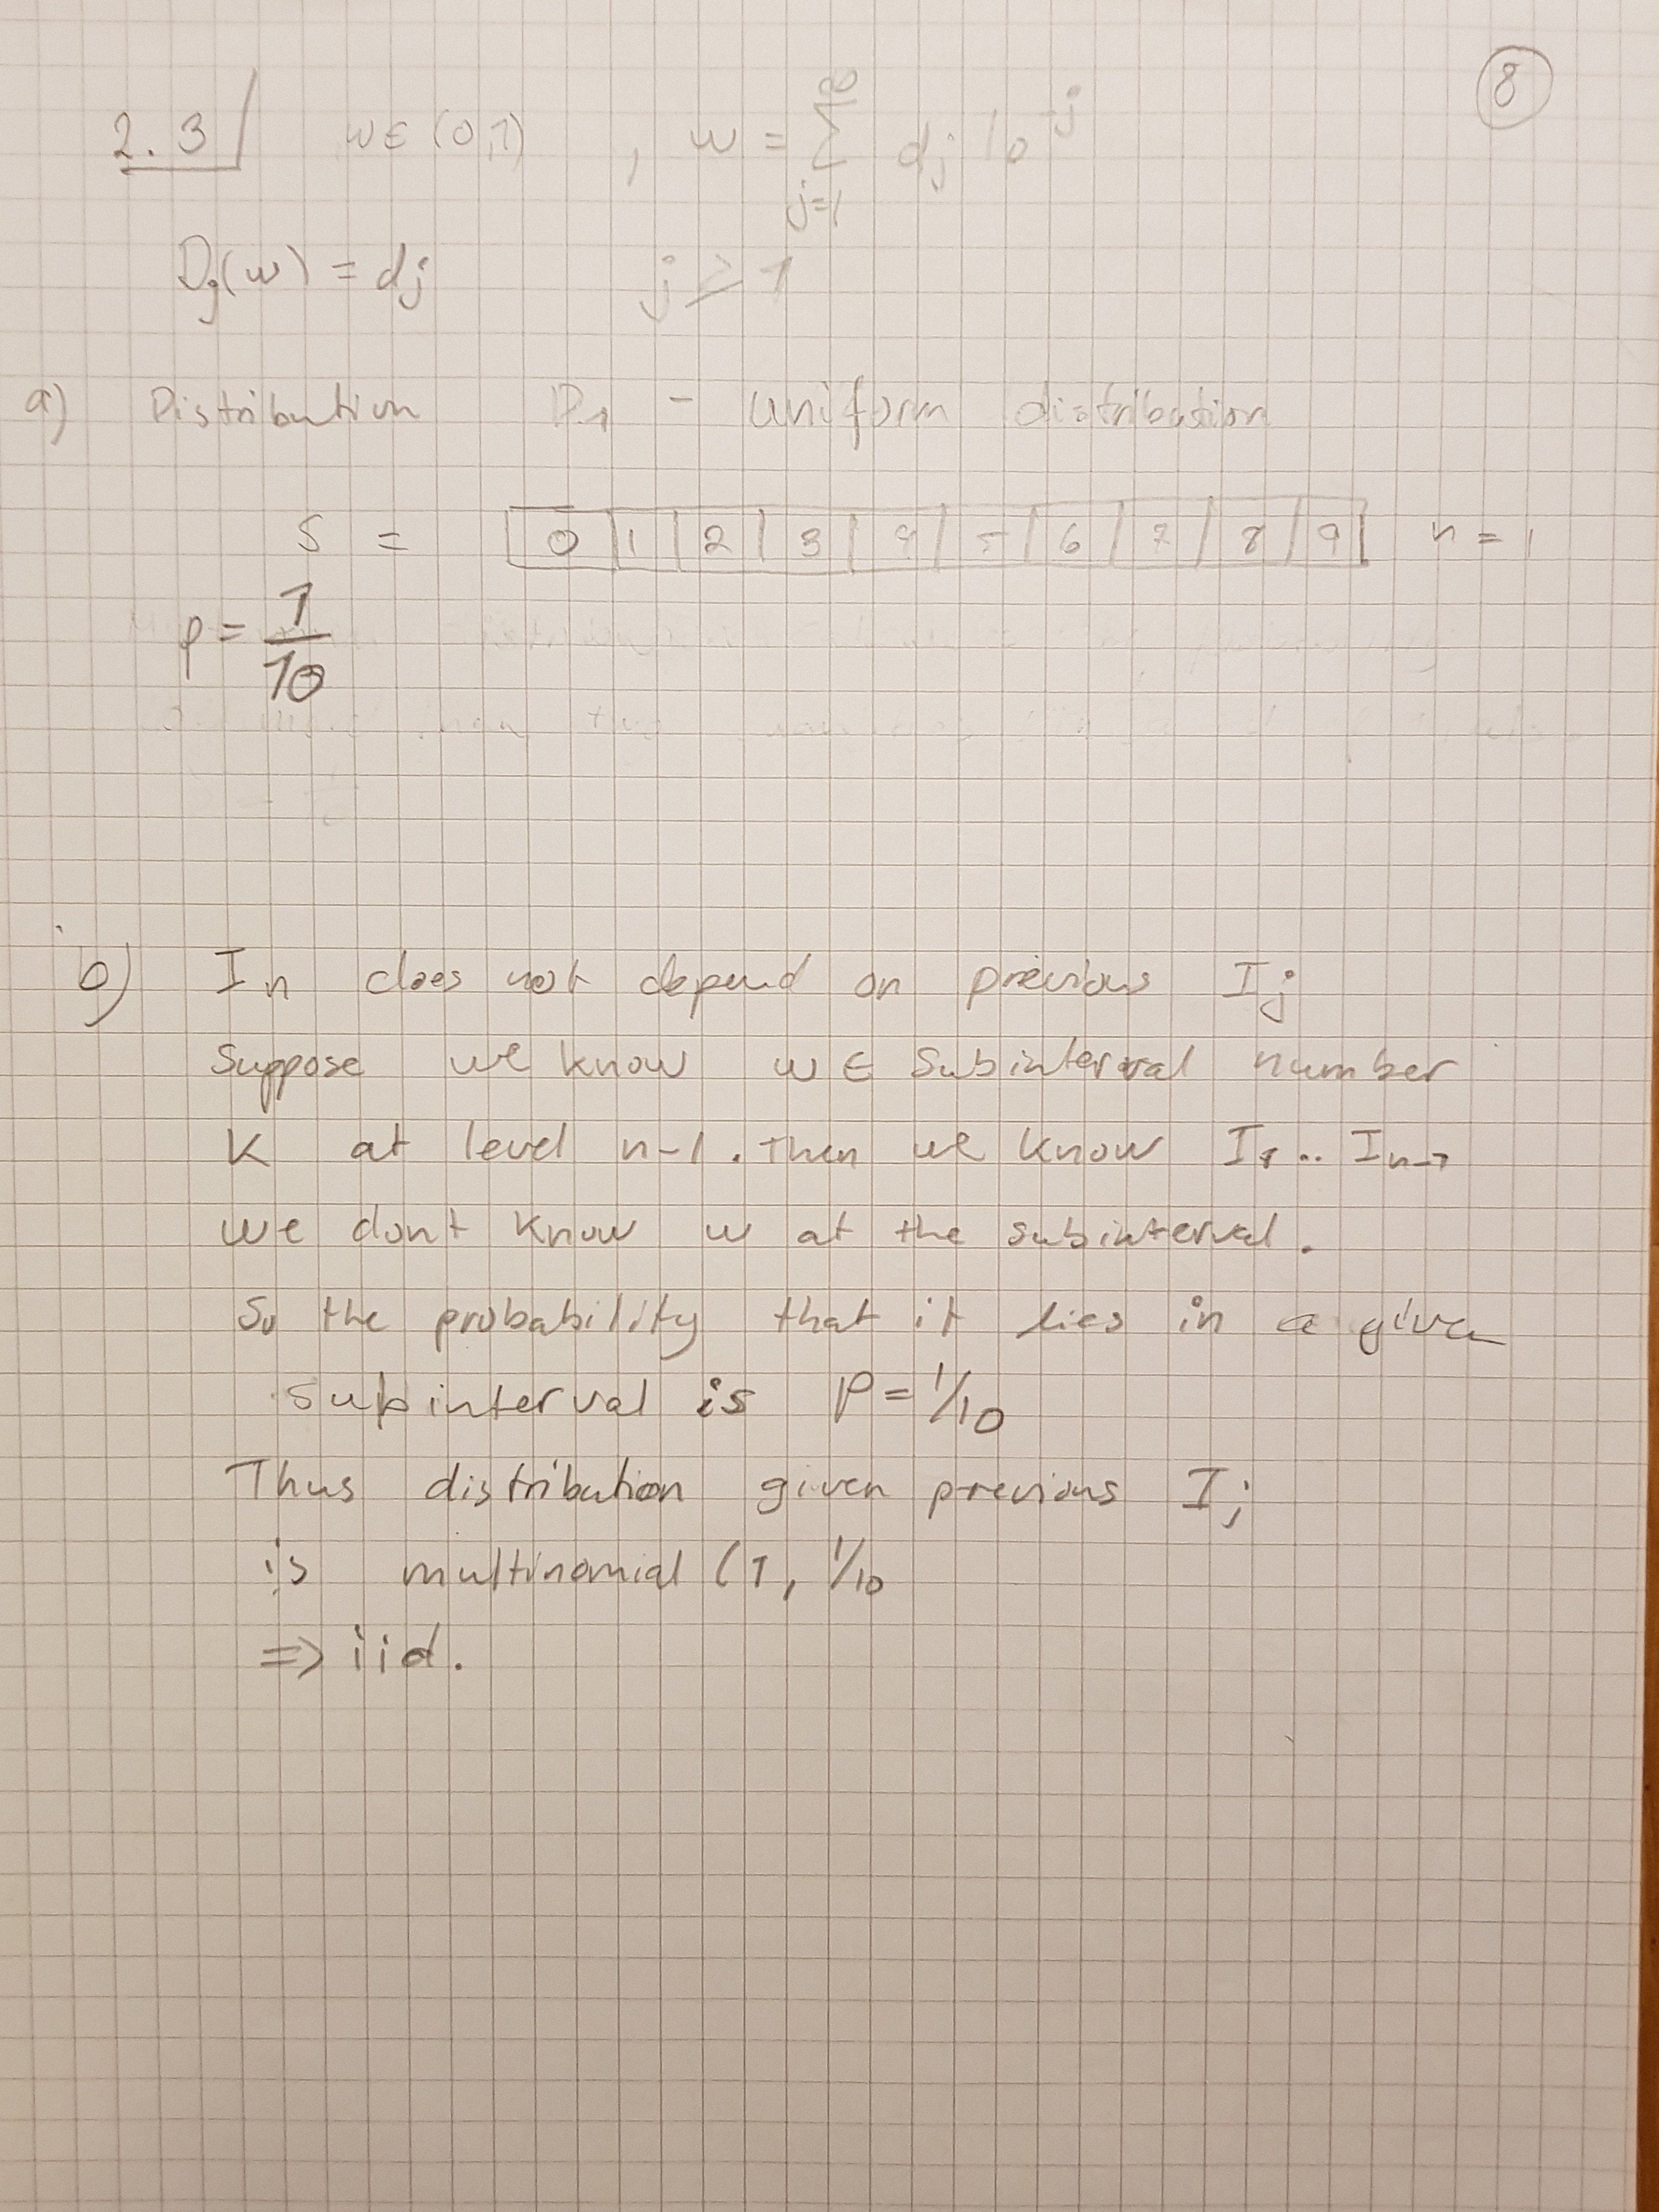 8
2.3 w∈(0,1) , w = ∑_{j=1}^{∞} dj 10^{-j}
Dj(w) = dj j ≥ 1
a) Distribution D1 - uniform distribution
S = 0 | 1 | 2 | 3 | 4 | 5 | 6 | 7 | 8 | 9 | n = 1
p = 1/10
b) In does not depend on previous Ij
Suppose we know w ∈ Subinterval number
K at level n-1. Then we know I1 .. In-1
we dont know w at the subinterval.
So the probability that it lies in a given
subinterval is P = 1/10
Thus distribution given previous Ij
is multinomial (1, 1/10
=> iid.